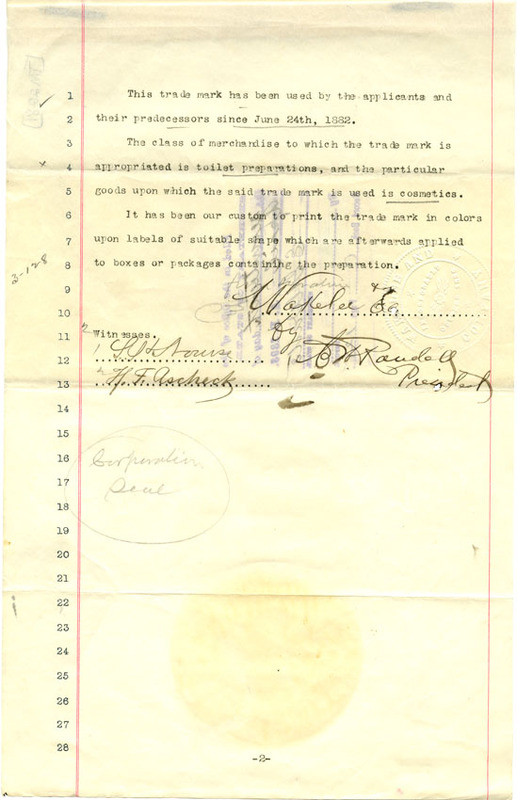 1 This trade mark has been used by the applicants and
2 their predecessors since June 24th, 1882.
3 The class of merchandise to which the trade mark is
4 appropriated is toilet preparations, and the particular
5 goods upon which the said trade mark is used is cosmetics.
6 It has been our custom to print the trade mark in colors
7 upon labels of suitable shape which are afterwards applied
3-128
8 to boxes or packages containing the preparation.
9 Wakelee & Co
10
11 Witnesses. by
12 Randall
13 President
14
15
16 Corporation
17 Seal
18
19
20
21
22
23
24
25
26
27
28
-2-